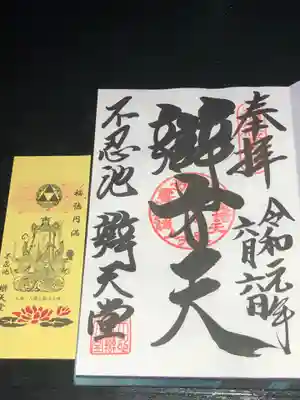 奉拝
令和元年
六月六日
辯才天
不忍池
辯天堂
福徳円満
不忍池
辯天堂